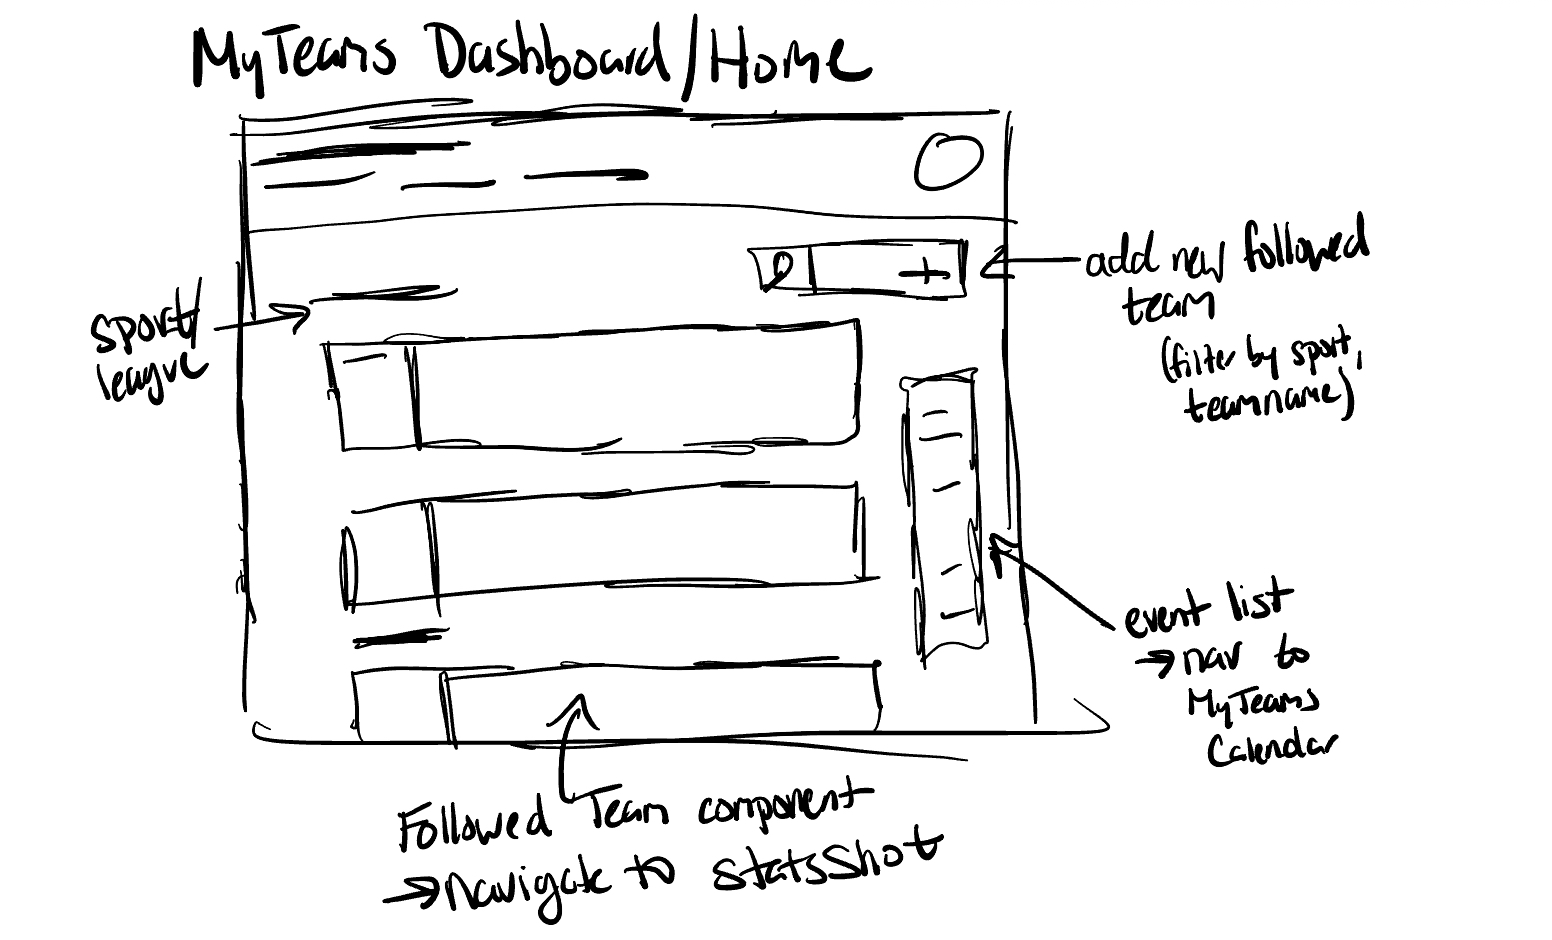 MyTeams Dashboard/Home
add new followed
team
(filter by sport,
teamname)
sport/
league
event list
→ nav to
MyTeams
Calendar
Followed Team component
→ navigate to statsshot